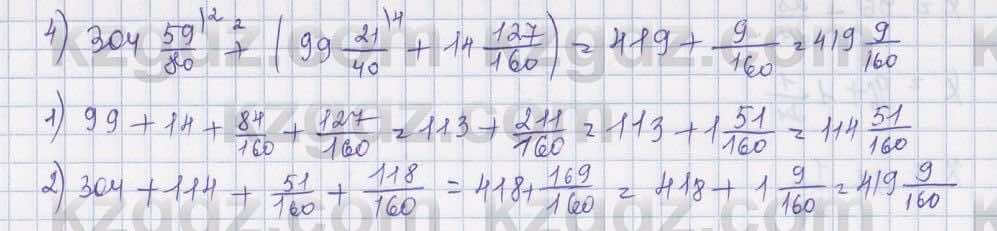 4) 304 59/80 |2 +² (99 21/40 |4 + 14 127/160) = 419 + 9/160 = 419 9/160
1) 99 + 14 + 84/160 + 127/160 = 113 + 211/160 = 113 + 1 51/160 = 114 51/160
2) 304 + 114 + 51/160 + 118/160 = 418 + 169/160 = 418 + 1 9/160 = 419 9/160
kzgdz.com